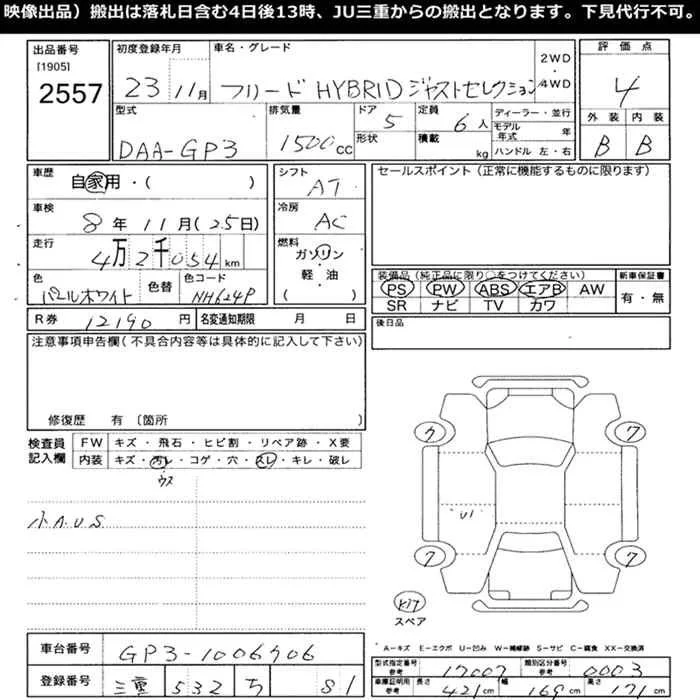 映像出品）搬出は落札日含む4日後13時、JU三重からの搬出となります。下見代行不可。
出品番号 初度登録年月 車名・グレード 2WD 評価点
[1905]
2557 23 11月 フリード HYBRID ジャストセレクション ・4WD 4
型式 排気量 ドア 定員 ディーラー・並行 外装 内装
DAA-GP3 1500cc 5 6人 モデル年式 年 B B
形状 積載 kg ハンドル 左・右
車歴 自家用・( ) シフト AT セールスポイント（正常に機能するものに限ります）
車検 8年11月(25日) 冷房 AC
走行 4万2千054km 燃料 ガソリン・軽・油 ( )
色 パールホワイト 色替 色コード NH624P
装備品（純正品に限り○をつけてください） 新車保証書
PS PW ABS エアB AW 有・無
SR ナビ TV カワ
R券 12190円 名変通知期限 月 日 後日品
注意事項申告欄（不具合内容等は具体的に記入して下さい）
修復歴 有〔箇所 〕
検査員記入欄 FW キズ・飛石・ヒビ割・リペア跡・X要
内装 キズ・汚レ・コゲ・穴・スレ・キレ・破レ
ウス
小A.U.S
ク 7
U1
7 7
スペア
A－キズ E－エクボ U－凹み W－補修跡 S－サビ C－腐食 XX－交換済
車台番号 GP3-1006906
登録番号 三重 532 ち 81
型式指定番号 参考 17007 類別区分番号 参考 0003
車庫証明用 参考 長さ 421cm 幅 169cm 高さ 171cm